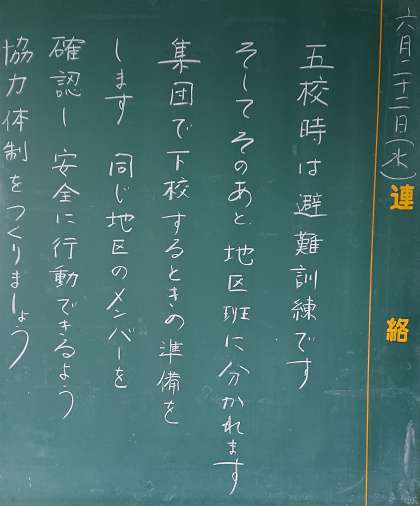 六月二十二日(水)
連絡
五校時は避難訓練です
そしてそのあと地区班に分かれます
集団で下校するときの準備を
します 同じ地区のメンバーを
確認し 安全に行動できるよう
協力体制をつくりましょう